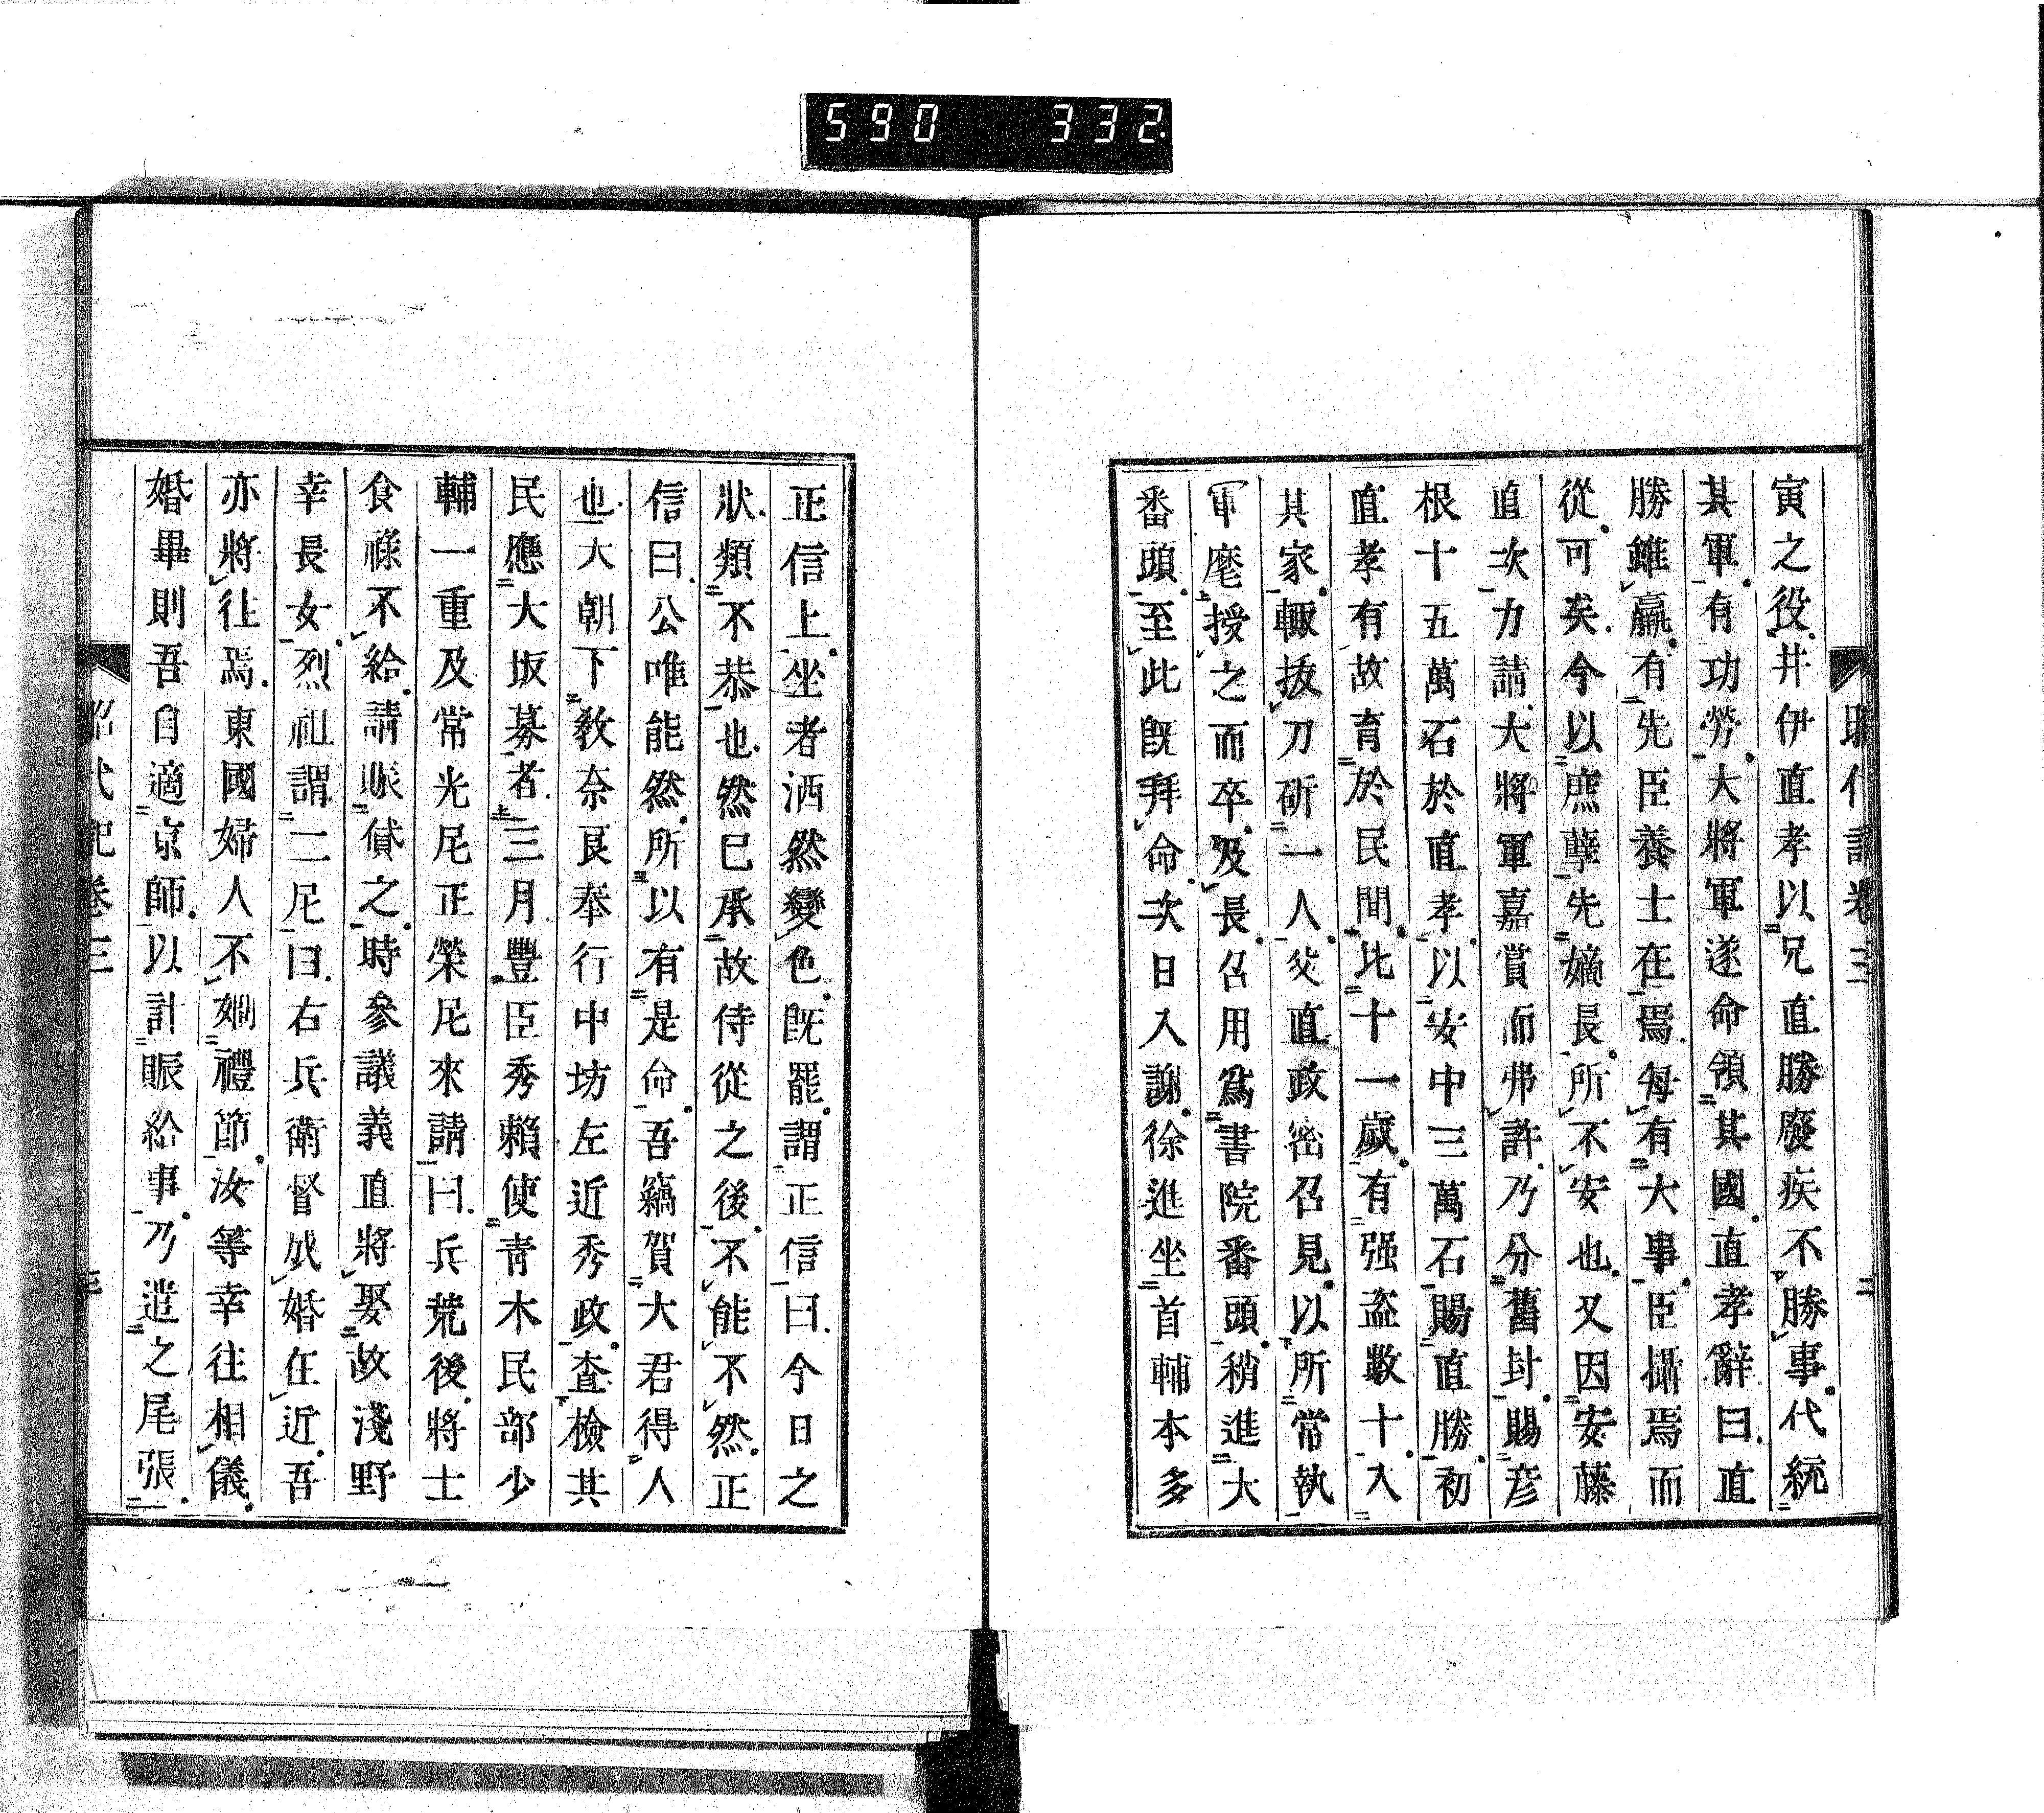 590 332
昭代記卷三 二
寅之役井伊直孝以兄直勝廢疾不勝事代統
其軍有功勞大將軍遂命領其國直孝辭曰直
勝雖羸有先臣養士在焉每有大事臣攝焉而
從可矣今以庶孽先嫡長所不安也又因安藤
直次力請大將軍嘉賞而弗許乃分舊封賜彦
根十五萬石於直孝以安中三萬石賜直勝初
直孝有故育於民間比十一歲有强盜數十入
其家輙拔刀斫一人父直政密召見以所常執
軍麾授之而卒及長召用爲書院番頭稍進大
番頭至此既拜命次日入謝徐進坐首輔本多
正信上坐者洒然變色既罷謂正信曰今日之
狀類不恭也然已承故侍從之後不能不然正
信曰公唯能然所以有是命吾竊賀大君得人
也大朝下敎奈良奉行中坊左近秀政查檢其
民應大坂募者三月豐臣秀賴使靑木民部少
輔一重及常光尼正榮尼來請曰兵荒後將士
食祿不給請賑貸之時參議義直將娶故淺野
幸長女烈祖謂二尼曰右兵衛督成婚在近吾
亦將往焉東國婦人不嫺禮節汝等幸往相儀
婚畢則吾自適京師以計賑給事乃遣之尾張
昭代記卷三 三